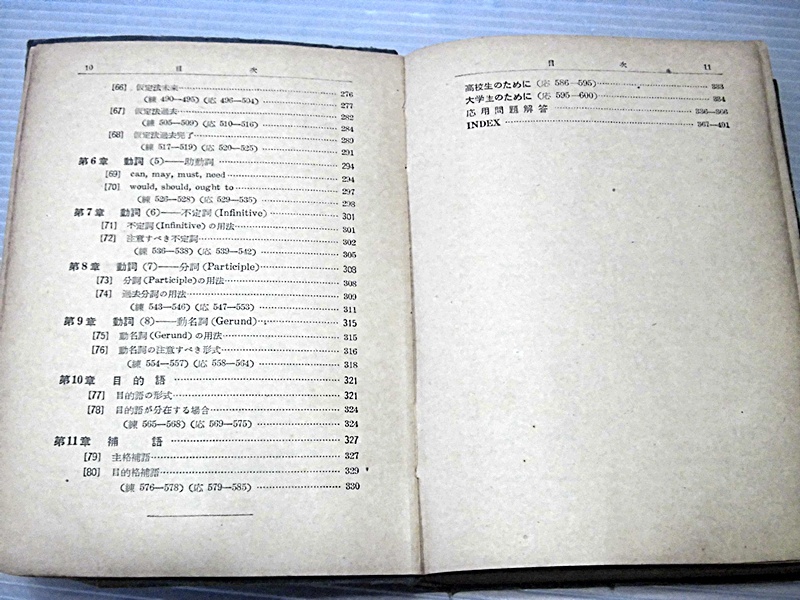 10 目次
[66] 仮定法未来 276
(練 490—495) (応 496—504) 277
[67] 仮定法過去 282
(練 505—509) (応 510—516) 284
[68] 仮定法過去完了 289
(練 517—519) (応 520—525) 291
第6章 動詞 (5)——助動詞 294
[69] can, may, must, need 294
[70] would, should, ought to 297
(練 526—528) (応 529—535) 298
第7章 動詞 (6)——不定詞 (Infinitive) 301
[71] 不定詞 (Infinitive) の用法 301
[72] 注意すべき不定詞 302
(練 536—538) (応 539—542) 305
第8章 動詞 (7)——分詞 (Participle) 308
[73] 分詞 (Participle) の用法 308
[74] 過去分詞の用法 309
(練 543—546) (応 547—553) 311
第9章 動詞 (8)——動名詞 (Gerund) 315
[75] 動名詞 (Gerund) の用法 315
[76] 動名詞の注意すべき形式 316
(練 554—557) (応 558—564) 318
第10章 目的語 321
[77] 目的語の形式 321
[78] 目的語が分在する場合 324
(練 565—568) (応 569—575) 324
第11章 補語 327
[79] 主格補語 327
[80] 目的格補語 329
(練 576—578) (応 579—585) 330
目次 11
高校生のために (応 586—595) 333
大学生のために (応 595—600) 334
応用問題解答 336—366
INDEX 367—491